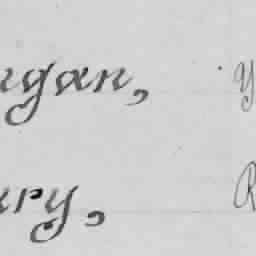 gan, y
ry, R